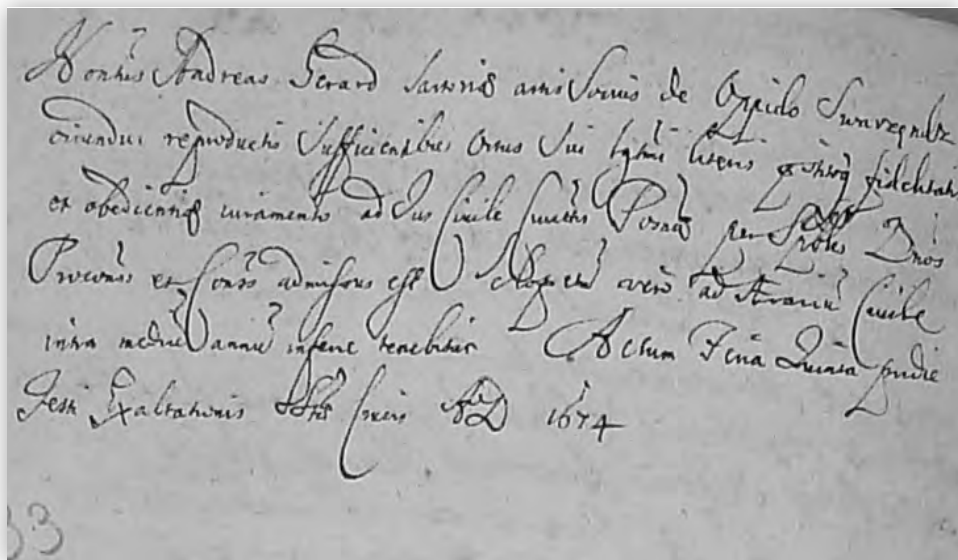 Hontus Andreas Gerard Sartoriæ artis Socius de Oppido Swarzendz
oriundus reproductis Sufficientibus Ortus Sui lgtmi literis fidelitatis
et obedientiæ iuramento ad Jus Civile Civitis Posnæ per Spbles Dnos
Procons et Cons admissus est Sclopetu vero ad Ærariu Civile
intra mediu annu inferre tenebitur Actum Feria Quinta pridie
Festi Exaltationis Crucis AD 1674
33